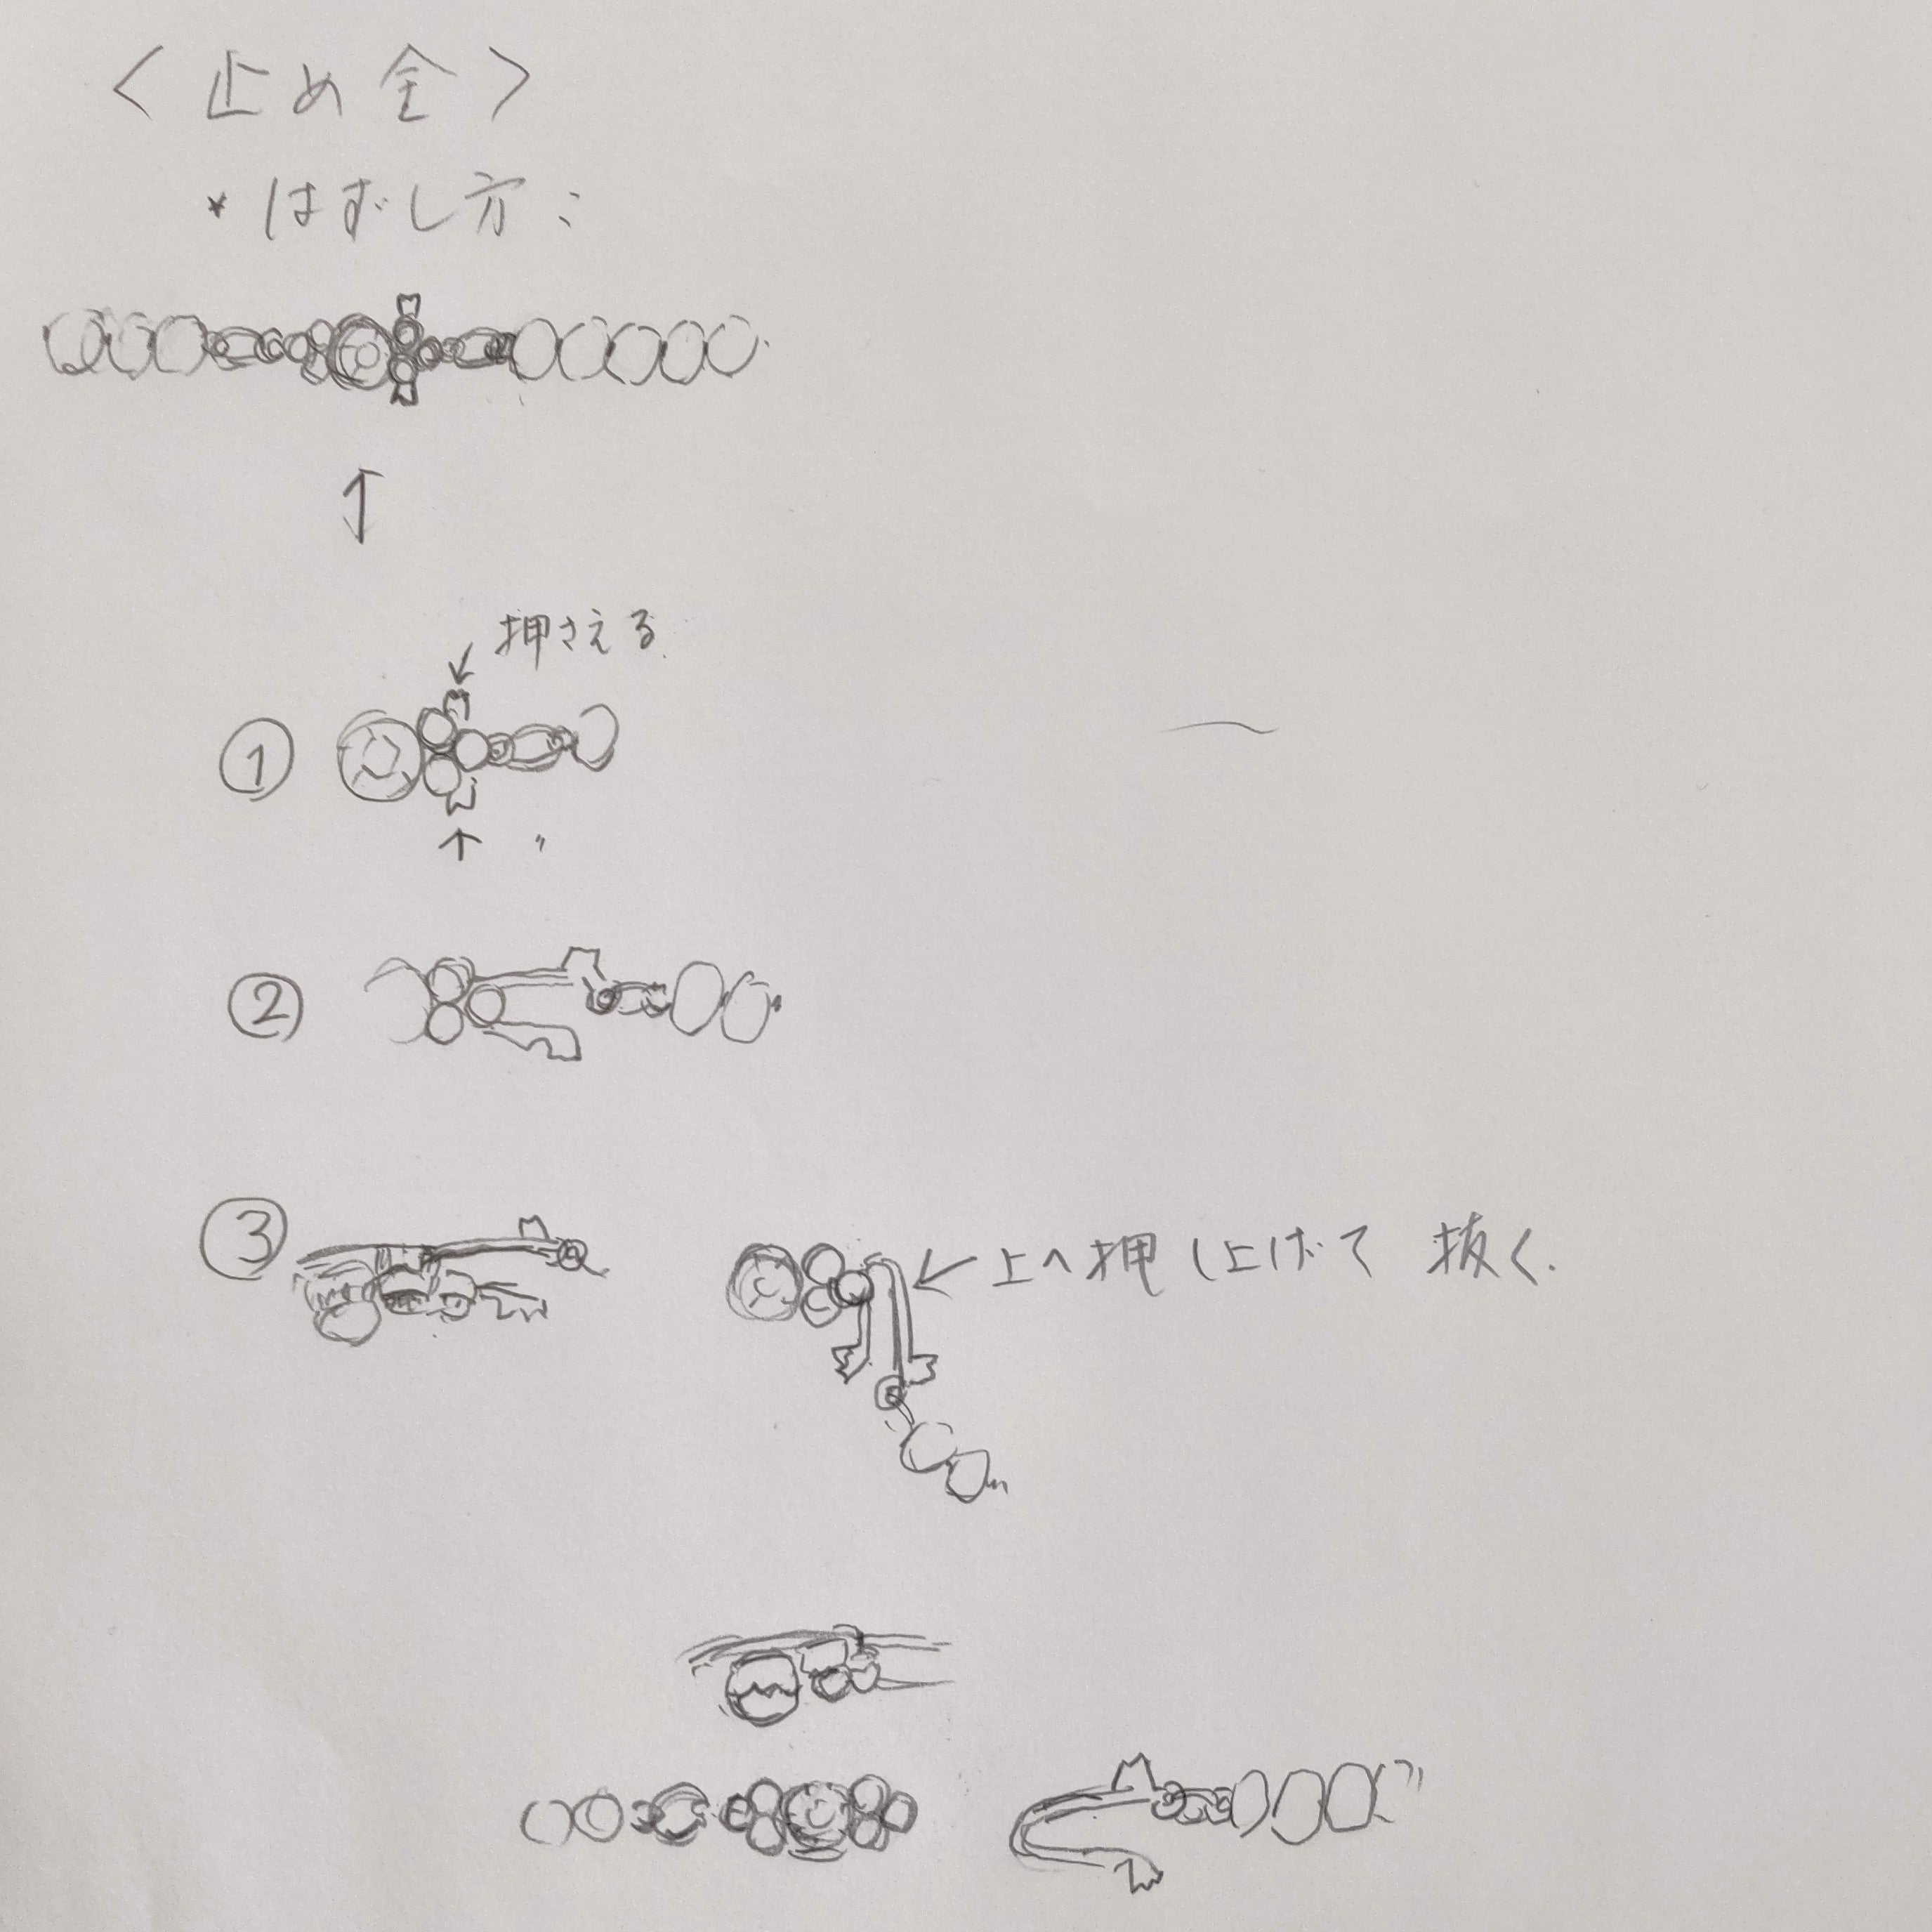 <止め金>
* はずし方:
押さえる
①
〃
②
③
上へ押し上げて 抜く.